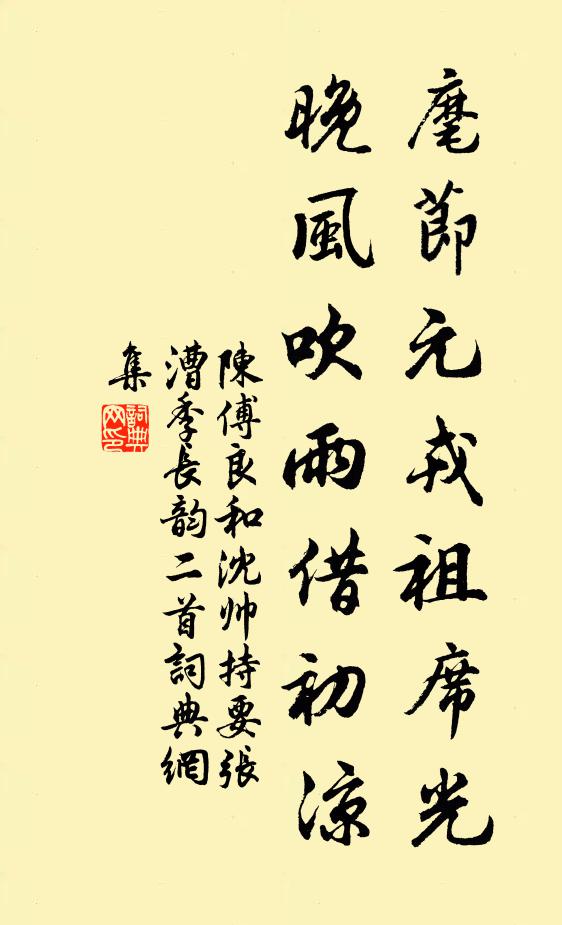 麾節元戎祖席光
晚風吹雨借初涼
陳傅良和沈帅持要張
漕季長韵二首詞典網
集
詞典网印